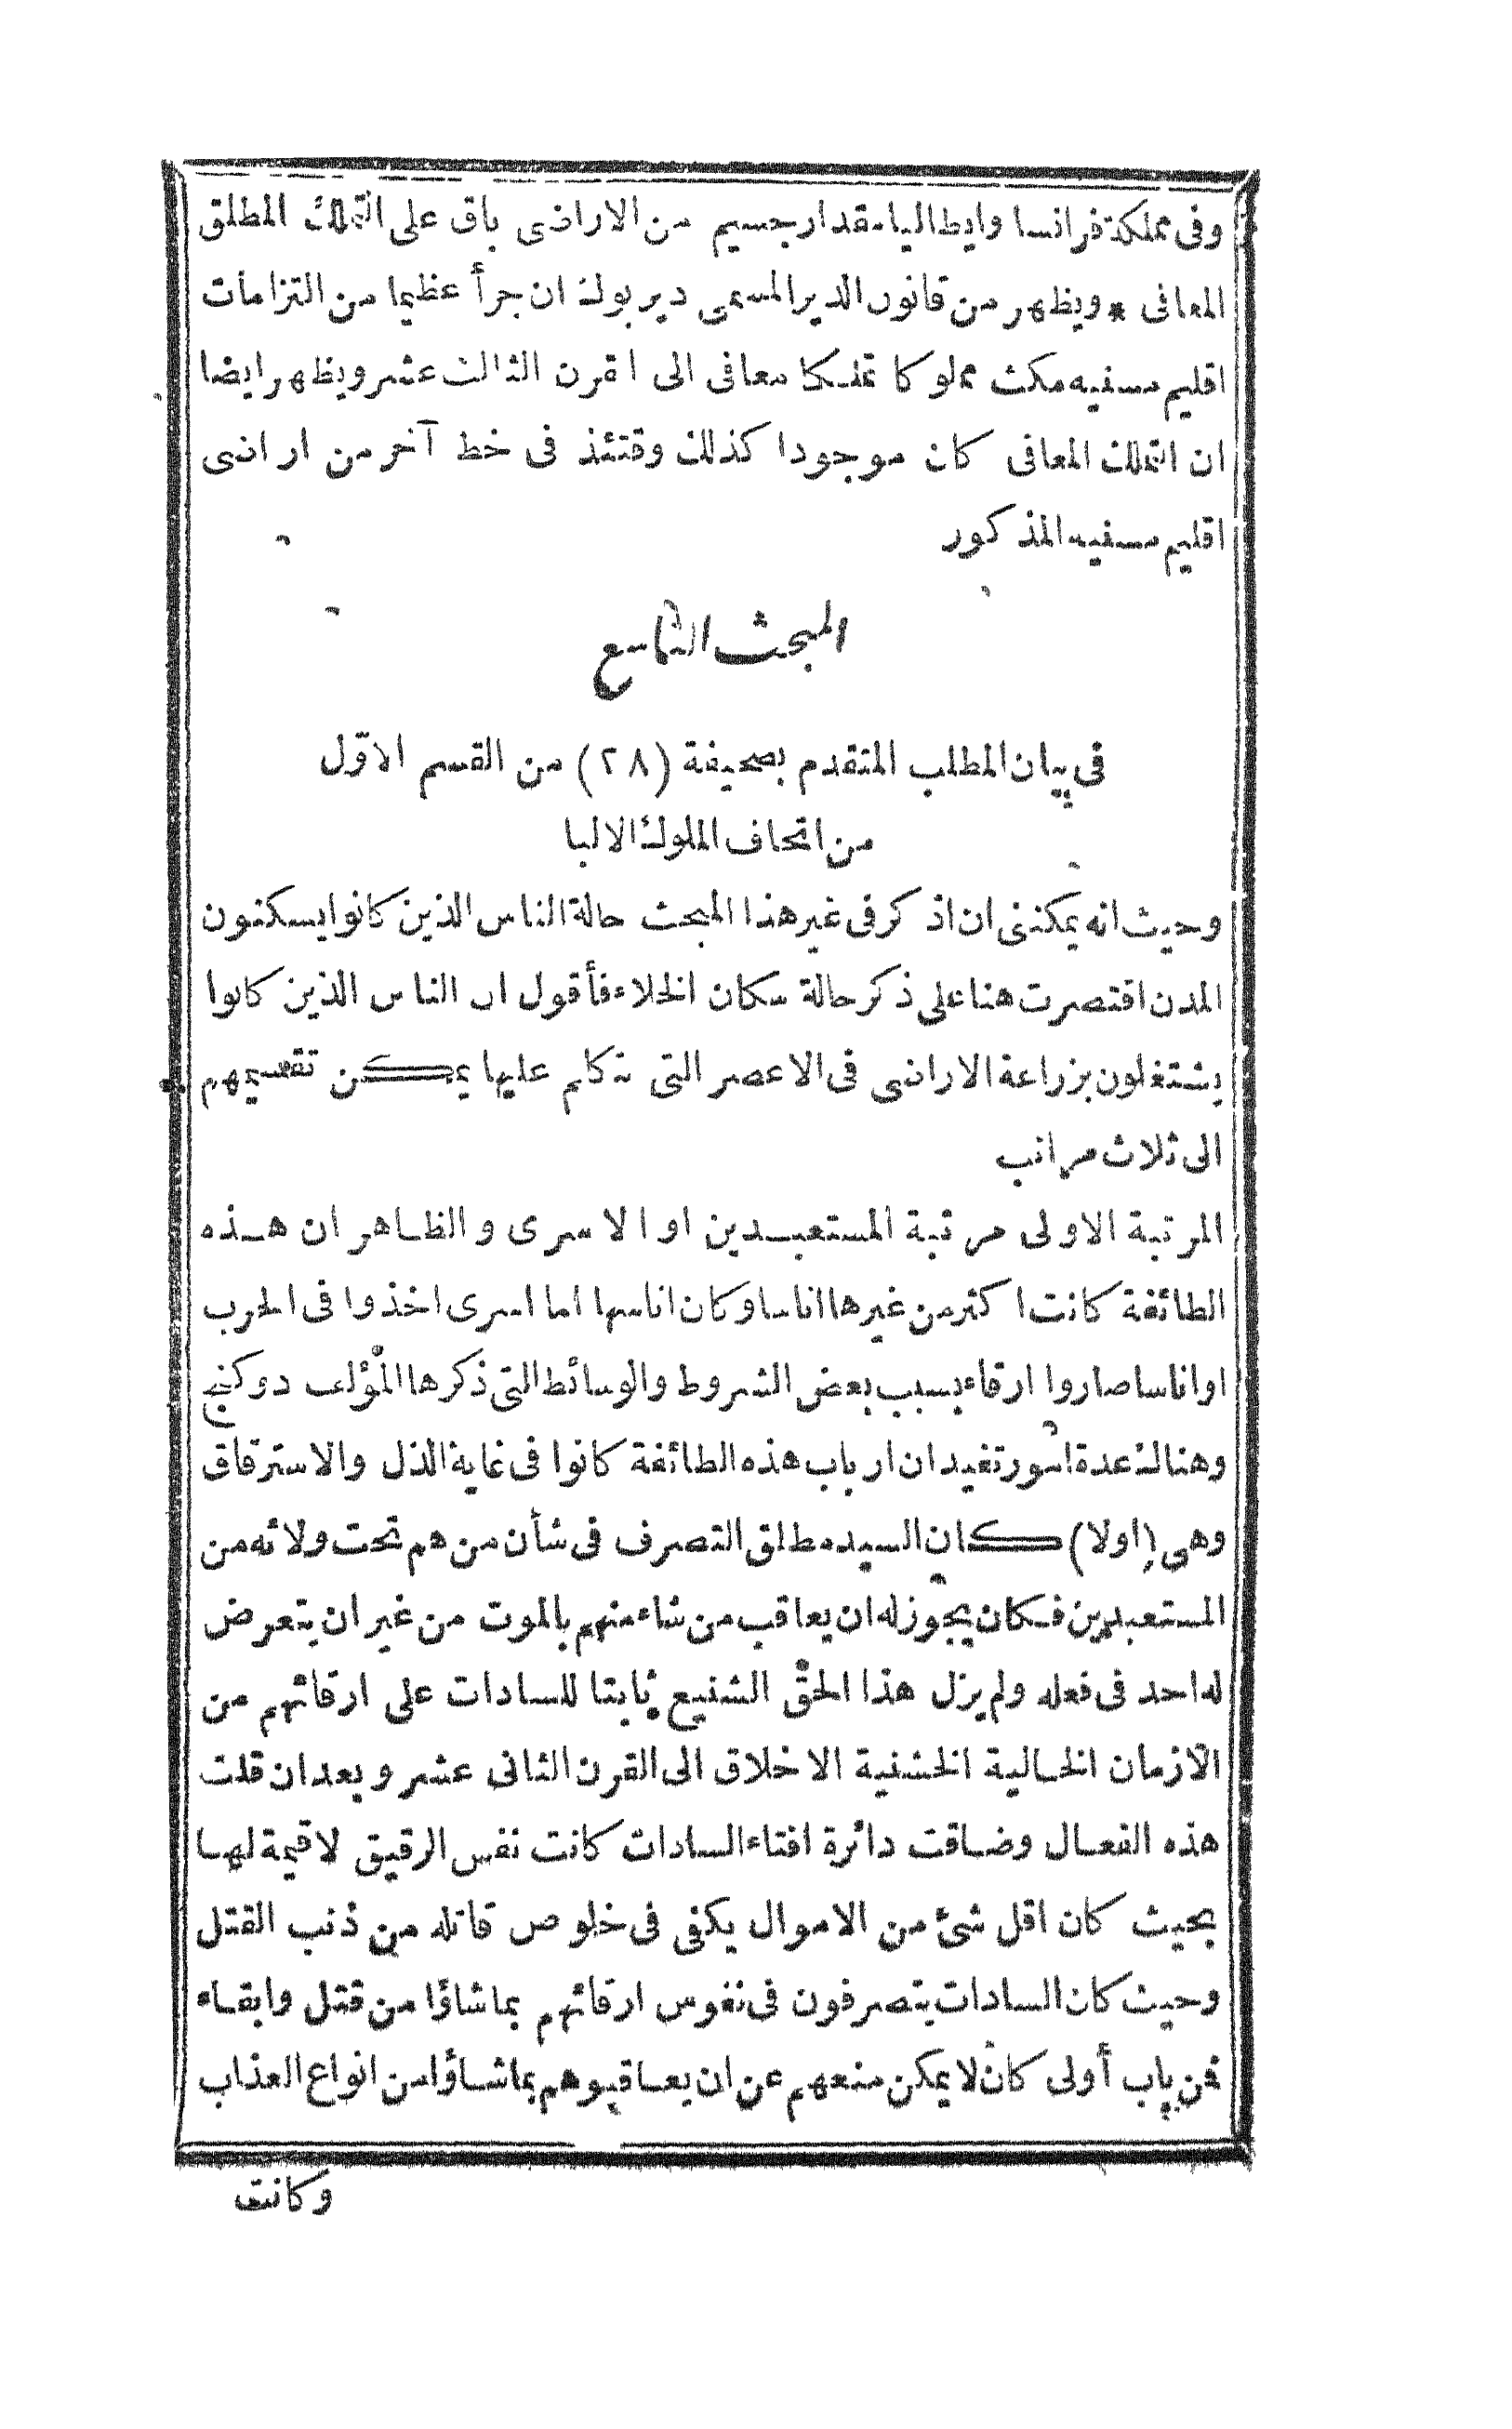 وفى مملكة فرانسا وايطاليا مقدار جسيم من الاراضى باق على التملك المطلق
المعافى * ويظهر من قانون الدير المسمى دير بولك ان جرأ عظيما من التزامات
اقليم مسفيه مكث مملوكا تملكا معافى الى القرن الثالث عشر ويظهر ايضا
ان التملك المعافى كان موجودا كذلك وقتئذ فى خط آخر من اراضى
اقليم مسفيه المذكور
المبحث التاسع
فى بيان المطلب المتقدم بصحيفة (٢٨) من القسم الاوّل
من اتحاف الملوك الالبا
وحيث انه يمكننى ان اذكر فى غير هذا المبحث حالة الناس الذين كانوا يسكنون
المدن اقتصرت هنا على ذكر حالة سكان الخلاء فأقول ان الناس الذين كانوا
يشتغلون بزراعة الاراضى فى الاعصر التى نتكلم عليها يمكن تقسيمهم
الى ثلاث مراتب
المرتبة الاولى مرتبة المستعبدين او الاسرى والظاهر ان هذه
الطائفة كانت اكثر من غيرها اناسا وكان اناسها اما اسرى اخذوا فى الحرب
او اناسا صاروا ارقاء بسبب بعض الشروط والوسائط التى ذكرها المؤلف دوكنج
وهنالك عدة امور تفيد ان ارباب هذه الطائفة كانوا فى غاية الذل والاسترقاق
وهى (اولا) كان السيد مطلق التصرف فى شأن من هم تحت ولائه من
المستعبدين فكان يجوز له ان يعاقب من شاء منهم بالموت من غير ان يتعرض
له احد فى فعله ولم يزل هذا الحق الشنيع ثابتا للسادات على ارقائهم من
الازمان الخالية الخشنية الاخلاق الى القرن الثانى عشر وبعد ان قلت
هذه الفعال وضاقت دائرة افتاء السادات كانت نفس الرقيق لا قيمة لها
بحيث كان اقل شئ من الاموال يكفى فى خلوص قاتله من ذنب القتل
وحيث كان السادات يتصرفون فى نفوس ارقائهم بما شاؤا من قتل وابقاء
فمن باب أولى كان لا يمكن منعهم عن ان يعاقبوهم بما شاؤا من انواع العذاب
وكانت